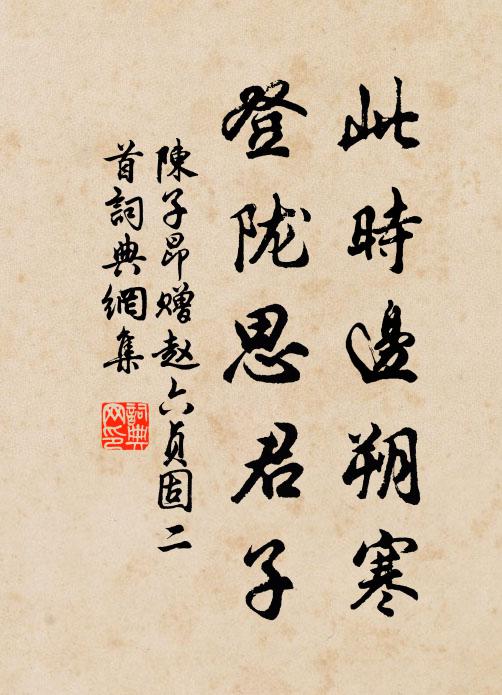 此時邊朔寒
登陇思君子
陳子昂赠赵六貞固二
首詞典網集
詞典
网印